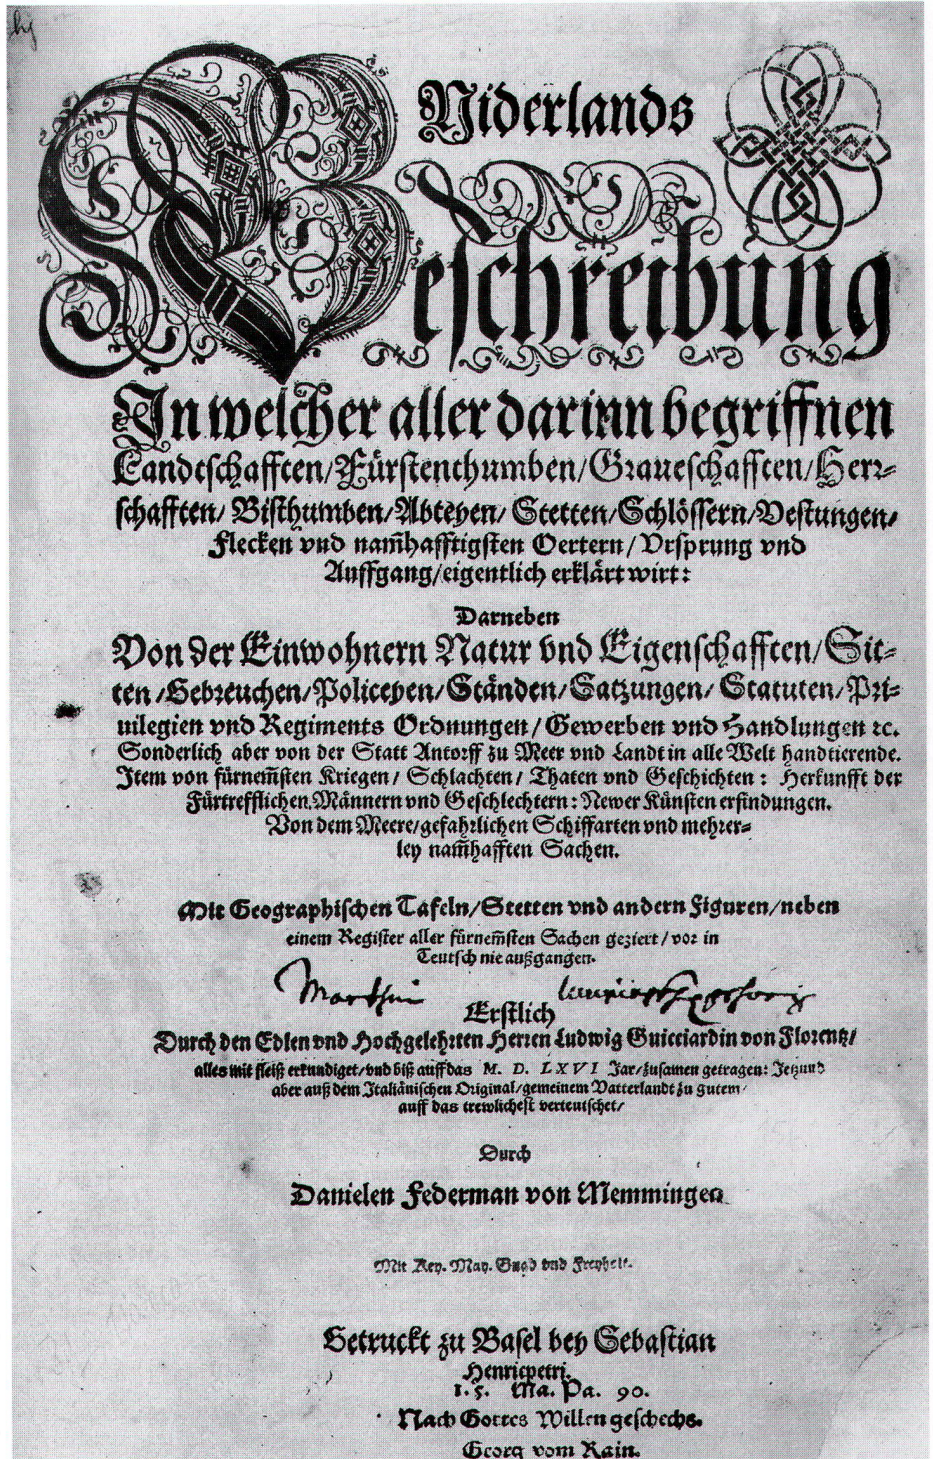 Niderlands
Beschreibung
In welcher aller darinn begriffnen
Landtschafften/Fürstenthumben/Graueschafften/Herr-
schafften/ Bisthumben/Abteyen/ Stetten/Schlössern/Vestungen/
Flecken vnd nam̃hafftigsten Oertern/Vrsprung vnd
Auffgang/eigentlich erklärt wirt:
Darneben
Von der Einwohnern Natur vnd Eigenschafften/Sit-
ten/Gebreuchen/Policeyen/Ständen/Satzungen/Statuten/Pri-
uilegien vnd Regiments Ordnungen/Gewerben vnd Handlungen ꝛc.
Sonderlich aber von der Statt Antorff zu Meer vnd Landt in alle Welt handtierende.
Item von fürnem̃sten Kriegen/ Schlachten/ Thaten vnd Geschichten: Herkunfft der
Fürtrefflichen Männern vnd Geschlechtern: Newer Künsten erfindungen.
Von dem Meere/gefahrlichen Schiffarten vnd mehrer-
ley nam̃hafften Sachen.
Mit Geographischen Tafeln/Stetten vnd andern Figuren/neben
einem Register aller fürnem̃sten Sachen geziert/vor in
Teutsch nie außgangen.
Marthin
Erstlich
Durch den Edlen vnd Hochgelehrten Herren Ludwig Guicciardin von Florentz/
alles mit fleiß erkundiget/vnd biß auff das M. D. LXVI Jar/zusamen getragen: Jetzund
aber auß dem Italiänischen Original/gemeinem Vatterlandt zu gutem/
auff das trewlichest verteutschet/
Durch
Danielen Federman von Memmingen
Mit Key. May. Gnad vnd Freyheit.
Getruckt zu Basel bey Sebastian
Henricpetri.
1. 5. Ma. Pa. 90.
Nach Gottes Willen geschechs.
Georg vom Rain.